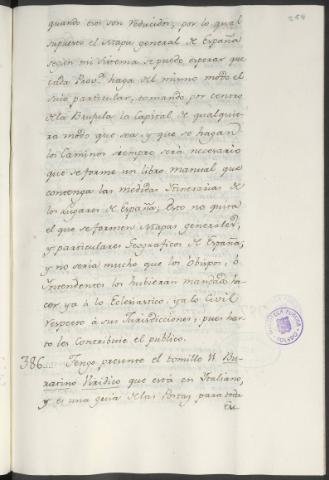 254
quando eros son reducidos; por lo qual
supuesto el Mapa general de España
segun mi Sistema se puede esperar que
cada Prov.ª haga del mismo modo el
suio particular, tomando por centro
de la Brujula la Capital de qualquie-
ra modo que sea, y que se hagan
los Caminos siempre será necesario
que se forme un libro manual que
contenga las medidas Itinerarias de
los Lugares de España; Esto no quita
el que se formen Mapas generales,
y particulares Geograficos de España;
y no seria mucho que los Obispos, ò
Intendentes los hubieran mandado ha-
cer ya à lo Eclesiastico, ya lo Civil
respecto à sus Jurisdicciones, pues har-
to les contribuie el publico.
386. Tengo presente el tomillo Il Bu-
ratino Viridico que está en Italiano,
y es una guia de las Postas para toda